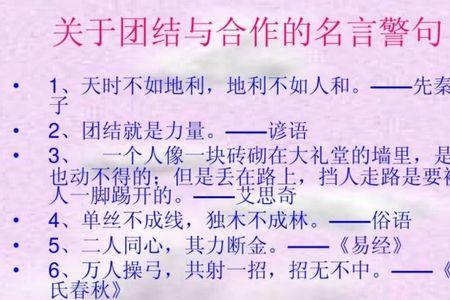 关于团结与合作的名言警句
• 1、天时不如地利，地利不如人和。——先秦
子
• 2、团结就是力量。——谚语
• 3、 一个人像一块砖砌在大礼堂的墙里，是
也动不得的；但是丢在路上，挡人走路是要被
人一脚踢开的。——艾思奇
• 4、单丝不成线，独木不成林。——俗语
• 5、二人同心，其力断金。——《易经》
• 6、万人操弓，共射一招，招无不中。——《
氏春秋》